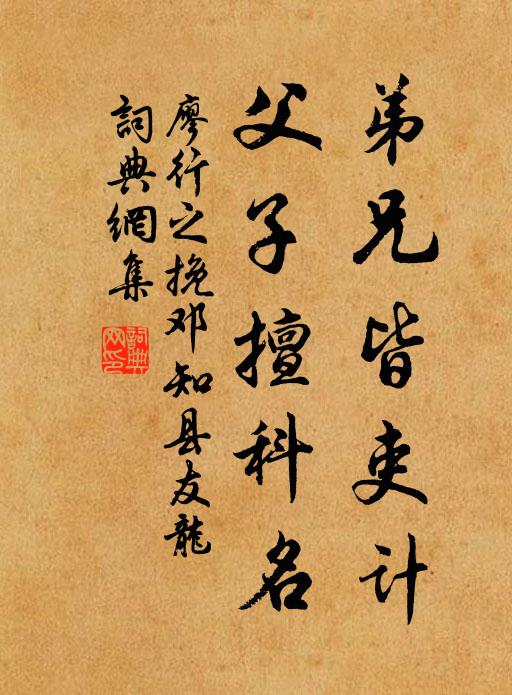 弟兄皆吏计
父子擅科名
廖行之挽邓知县友龍
詞典網集
詞典网印